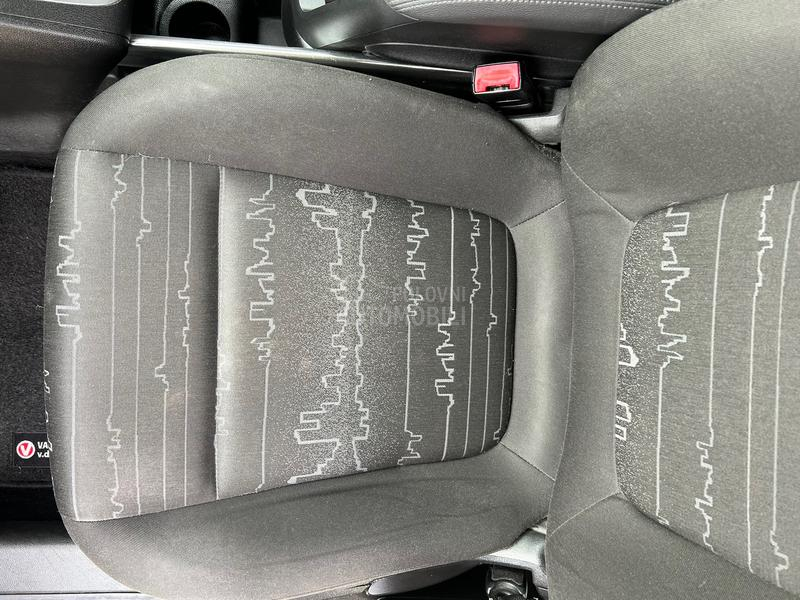 POLOVNI
AUTOMOBILI
VA
v.d